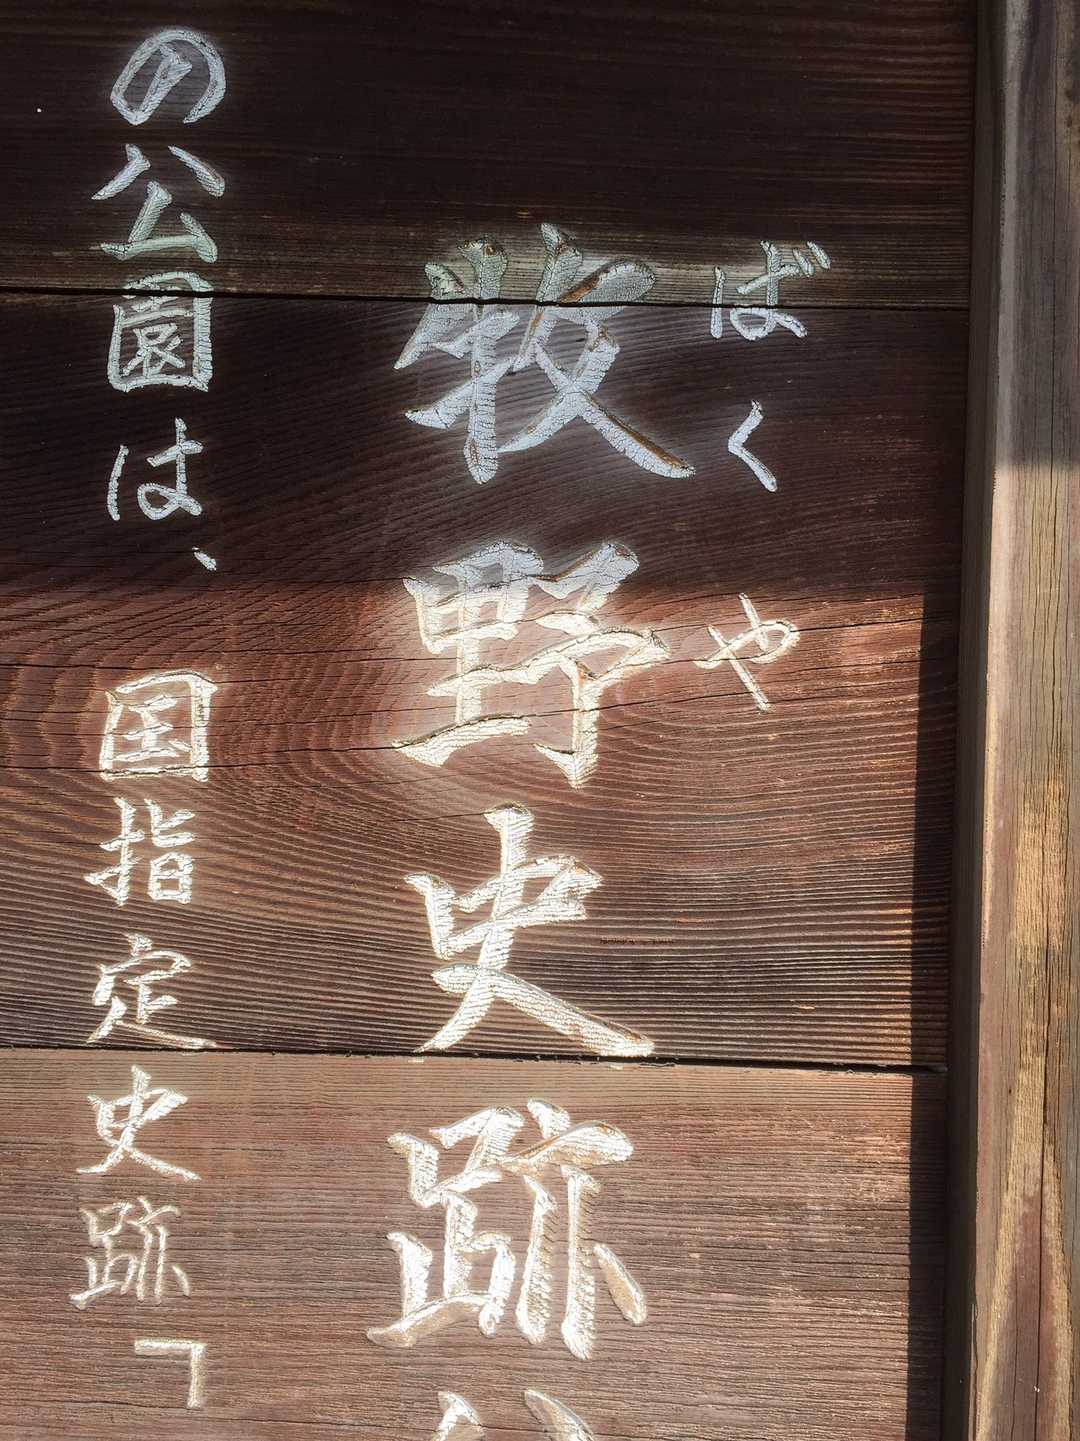 ばくや
牧野史跡
の公園は、国指定史跡「